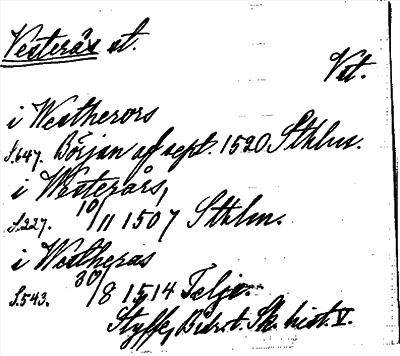 Vesterås st.
Vst.
i Westherors
S.647. Början af sept. 1520 Sthlm.
i Westerårs,
S.227. 10/11 1507 Sthlm.
i Westheras
S.543. 30/8 1514 Telje.
Styffe, Bidr. t. Sk. hist. V.